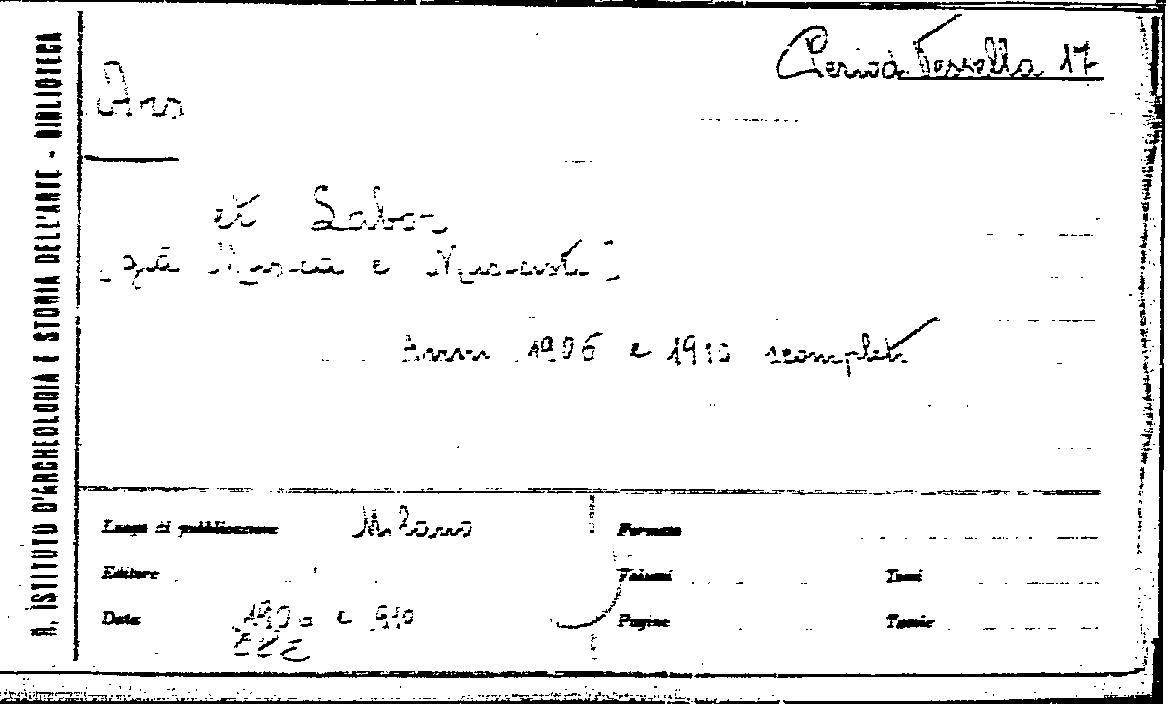 R. ISTITUTO D'ARCHEOLOGIA E STORIA DELL'ARTE - BIBLIOTECA
Period. Tessella 17
Ars
et Labor
"già Musica e Musicisti"
Anni 1906 e 1910 incompleti
Luogo di pubblicazione Milano Formato
Editore Volumi Tomi
Data e 910 Pagine Tavole